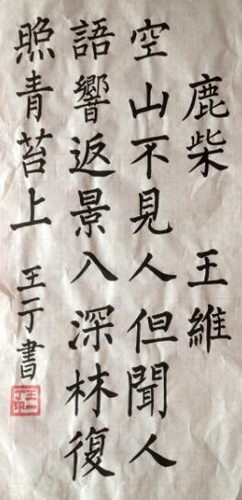 鹿柴 王維
空山不見人但聞人
語響返景入深林復
照青苔上 王于書